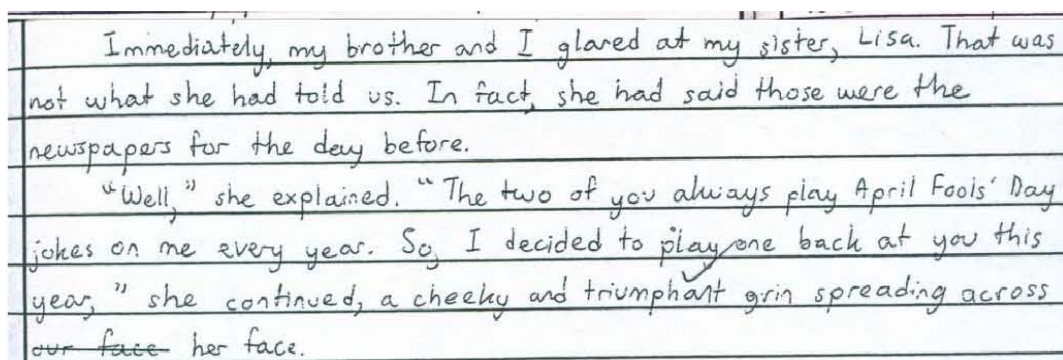 Immediately, my brother and I glared at my sister, Lisa. That was
not what she had told us. In fact, she had said those were the
newspapers for the day before.
"Well," she explained. "The two of you always play April Fools' Day
jokes on me every year. So, I decided to play one back at you this
year," she continued, a cheeky and triumphant grin spreading across
our face her face.